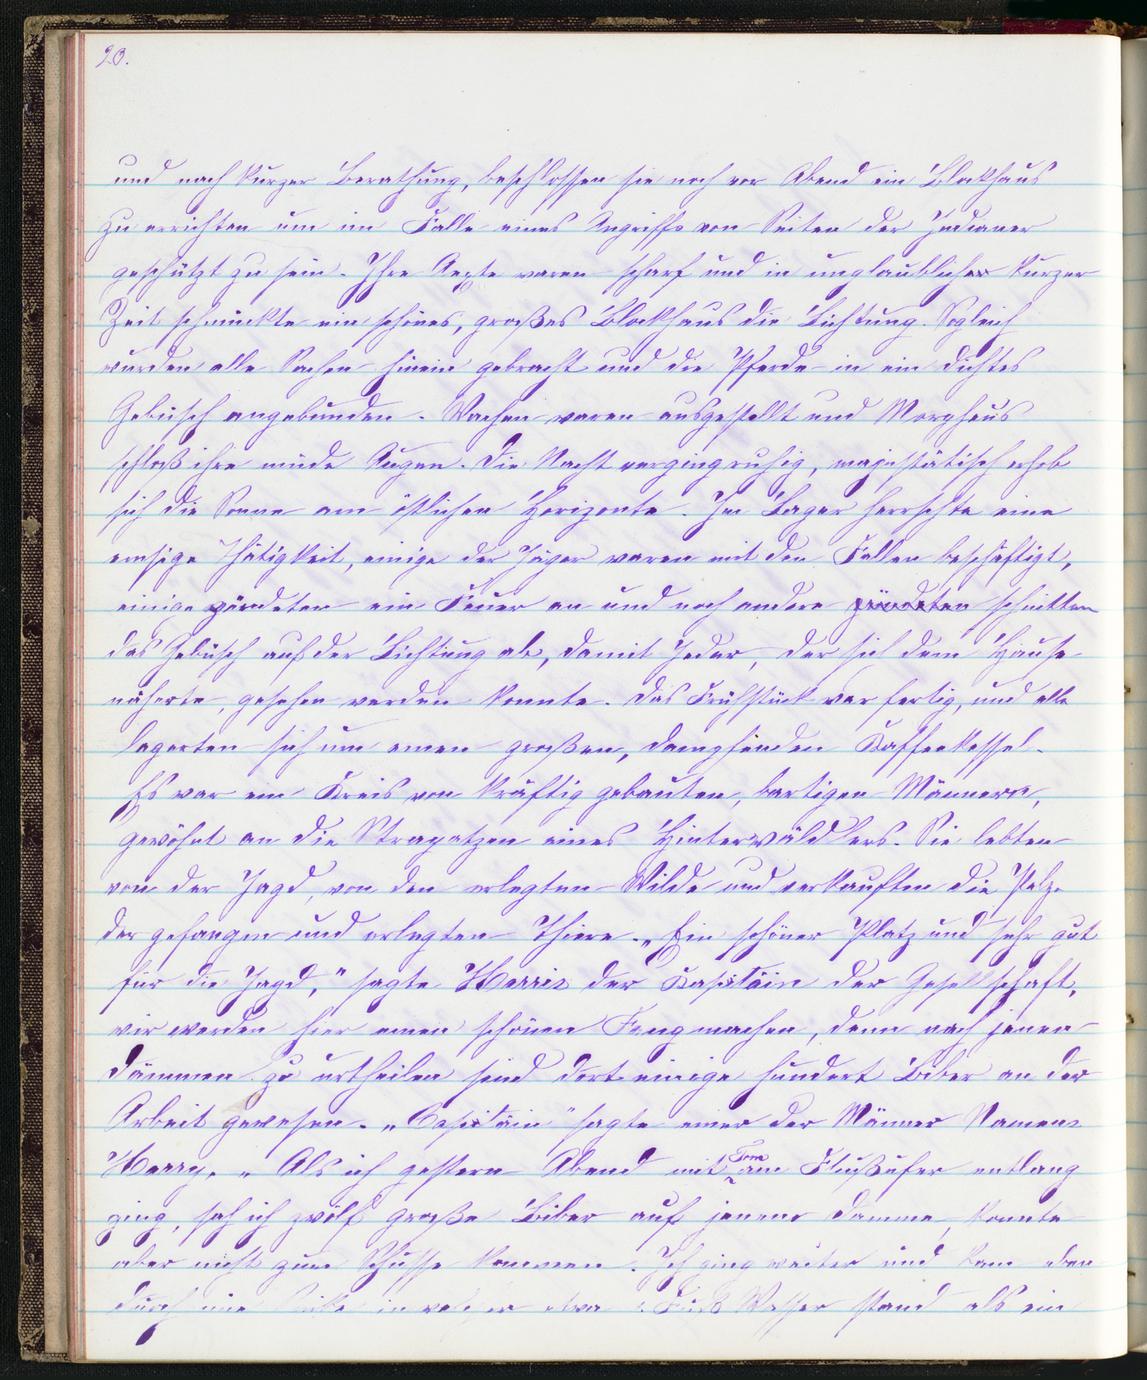 20.
und nach kurzer Berathung, beschlossen sie noch vor Abend ein Blockhaus
zu errichten um im Falle eines Angriffs von Seiten der Indianer
geschützt zu sein. Ihre Aexte waren scharf und in unglaublicher kurzer
Zeit schmückte ein schönes, großes Blockhaus die Lichtung. Sogleich
wurden alle Sachen hinein gebracht und die Pferde in ein dichtes
Gebüsch angebunden. Wachen waren ausgestellt und Morpheus
schloß ihre müde Augen. Die Nacht verging ruhig, majestätisch erhob
sich die Sonne am östlichen Horizonte. Im Lager herrschte eine
emsige Thätigkeit, einige der Jäger waren mit den Fallen beschäftigt,
einige zündeten ein Feuer an und noch andere zündeten schnitten
das Gebüsch auf der Lichtung ab, damit Jeder, der sich dem Hause
näherte, gesehen werden konnte. Das Frühstück war fertig, und alle
lagerten sich um einen großen, dampfenden Kaffeekessel.
Es war ein Kreis von kräftig gebauten, bartigen Männern,
gewöhnt an die Strapatzen eines Hinterwäldlers. Sie lebten
von der Jagd, von den erlegten Wilde und verkauften die Pelze
der gefangen und erlegten Thiere. „Ein schöner Platz und sehr gut
für die Jagd," sagte Harris der Kapitäin der Gesellschaft,
wir werden hier einen schönen Fang machen, denn nach jenen
Dämmen zu urtheilen sind dort einige hundert Biber an der
Arbeit gewesen. „Capitäin" sagte einer der Männer Namens
Harry, „Als ich gestern Abend mit Tom am Flußufer entlang
ging, sah ich zwölf große Biber auf jenem Damme, konnte
aber nicht zum Schusse kommen. Ich ging weiter und kam eben
durch eine in welcher etwa Fuß Wasser stand als ein